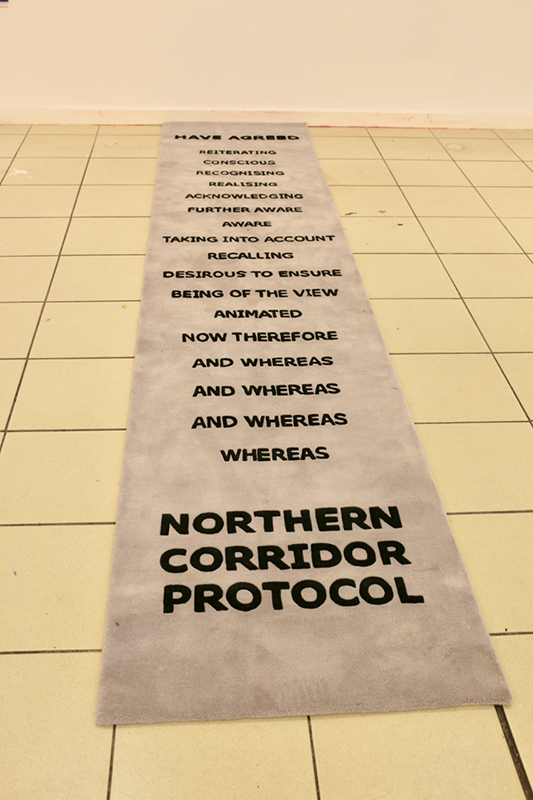 HAVE AGREED
REITERATING
CONSCIOUS
RECOGNISING
REALISING
ACKNOWLEDGING
FURTHER AWARE
AWARE
TAKING INTO ACCOUNT
RECALLING
DESIROUS TO ENSURE
BEING OF THE VIEW
ANIMATED
NOW THEREFORE
AND WHEREAS
AND WHEREAS
AND WHEREAS
WHEREAS
NORTHERN
CORRIDOR
PROTOCOL